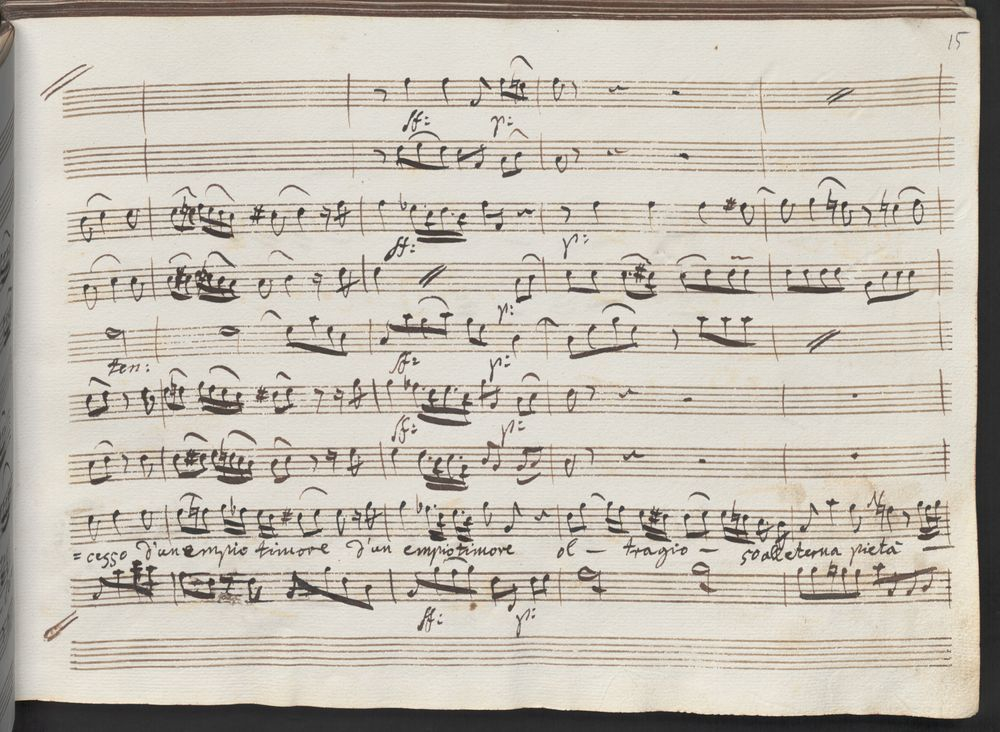 15
sf: p:
sf: p:
p:
ten: sf: p:
sf: p:
=cesso d'un empio timore d'un empio timore ol - tragio - so all eterna pietà -
sf: p: